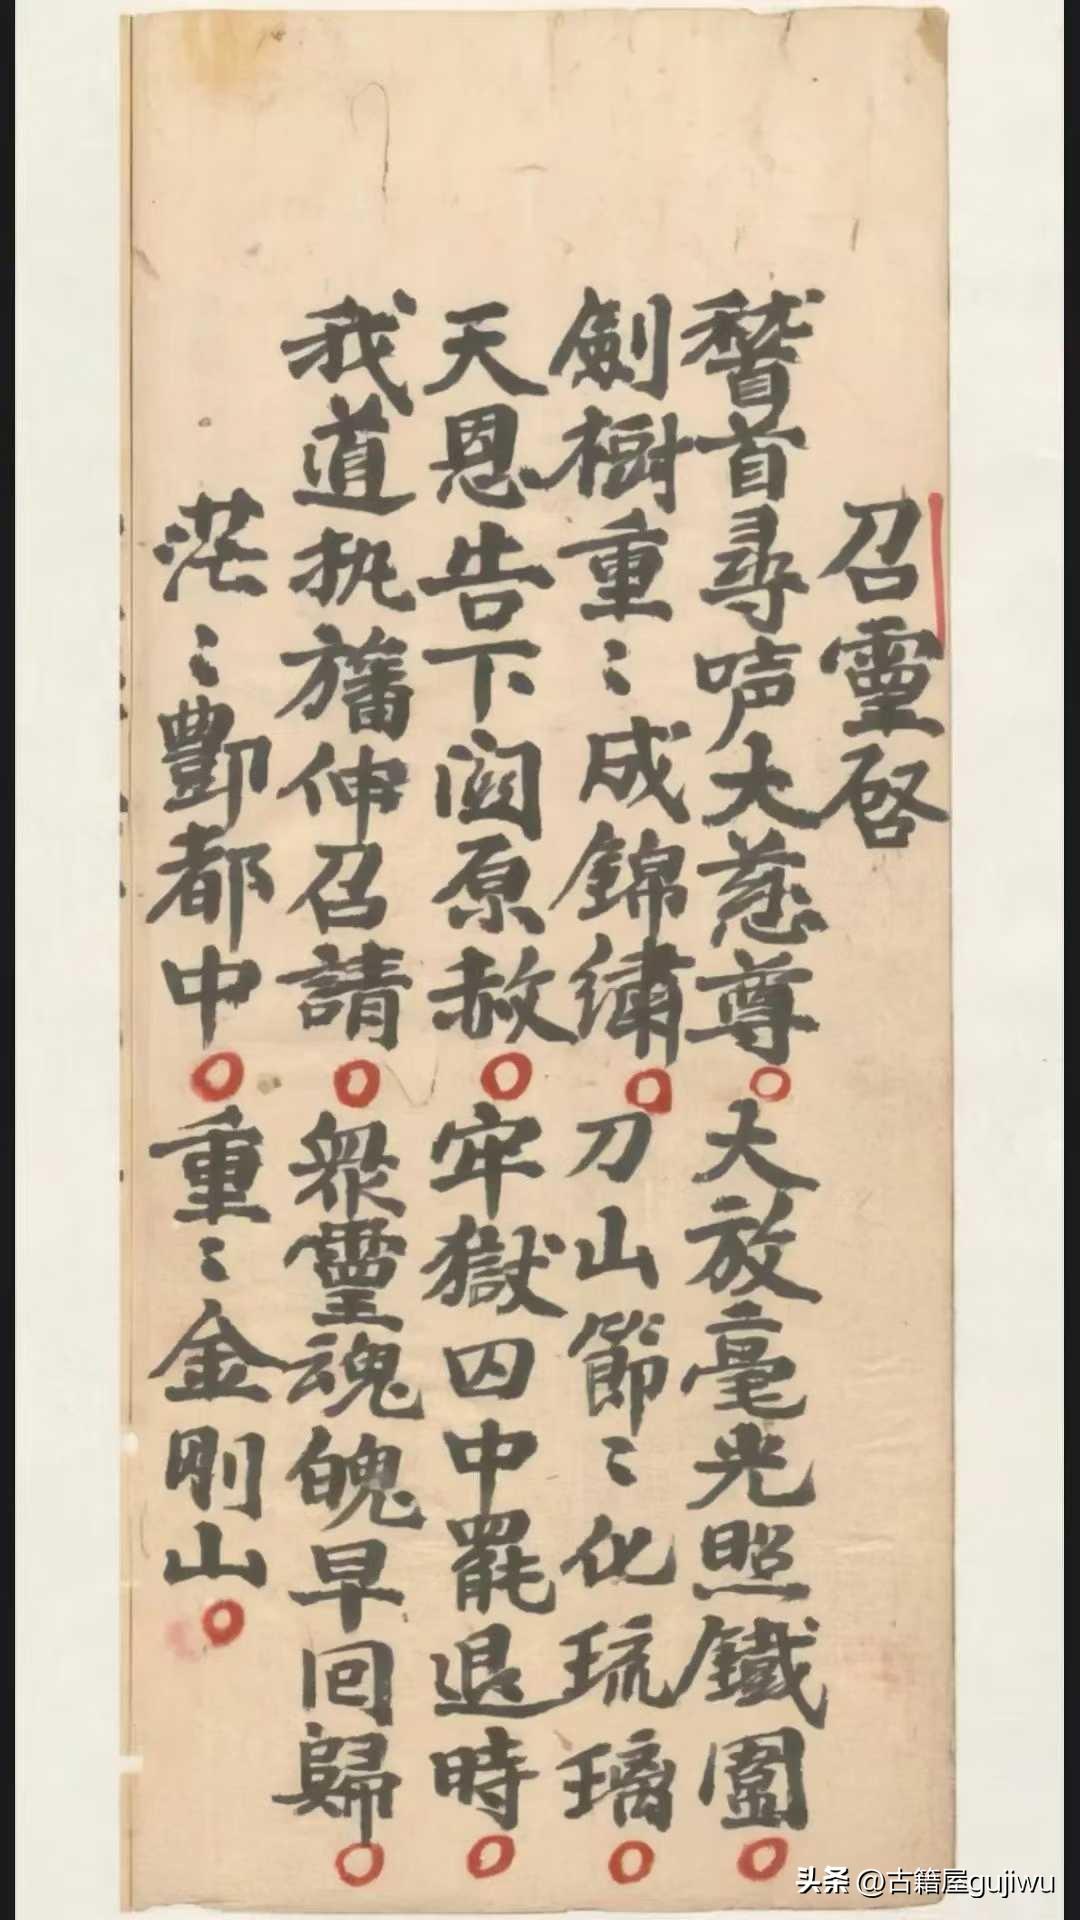 召靈啓
稽首尋声大慈尊。大放毫光照鐵圍。
劍樹重〻成錦繡。刀山節〻化琉璃。
天恩告下闓原赦。牢獄囚中罷退時。
我道执旛伸召請。衆靈魂魄早回歸。
茫〻酆都中。重〻金刚山。
头条 @古籍屋gujiwu